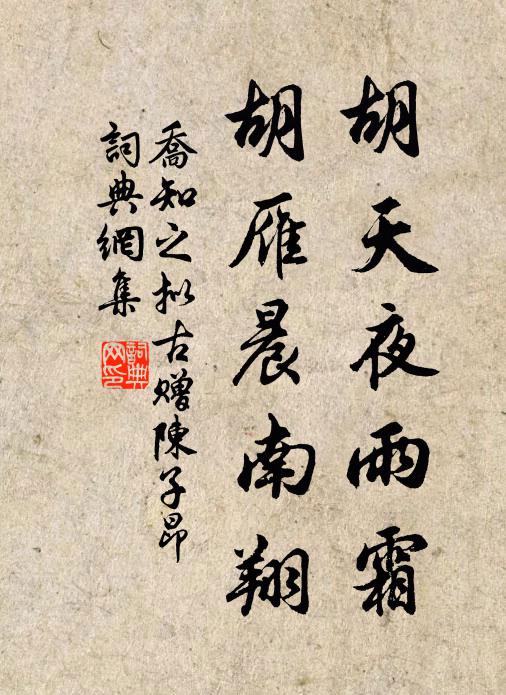 胡天夜雨霜
胡雁晨南翔
喬知之拟古赠陳子昂
詞典網集
詞典網印